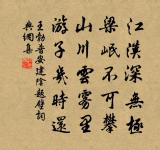 江漢深無極
梁岷不可攀
山川雲霧里
游子幾時還
王勃普安建陰題壁詞
典網集